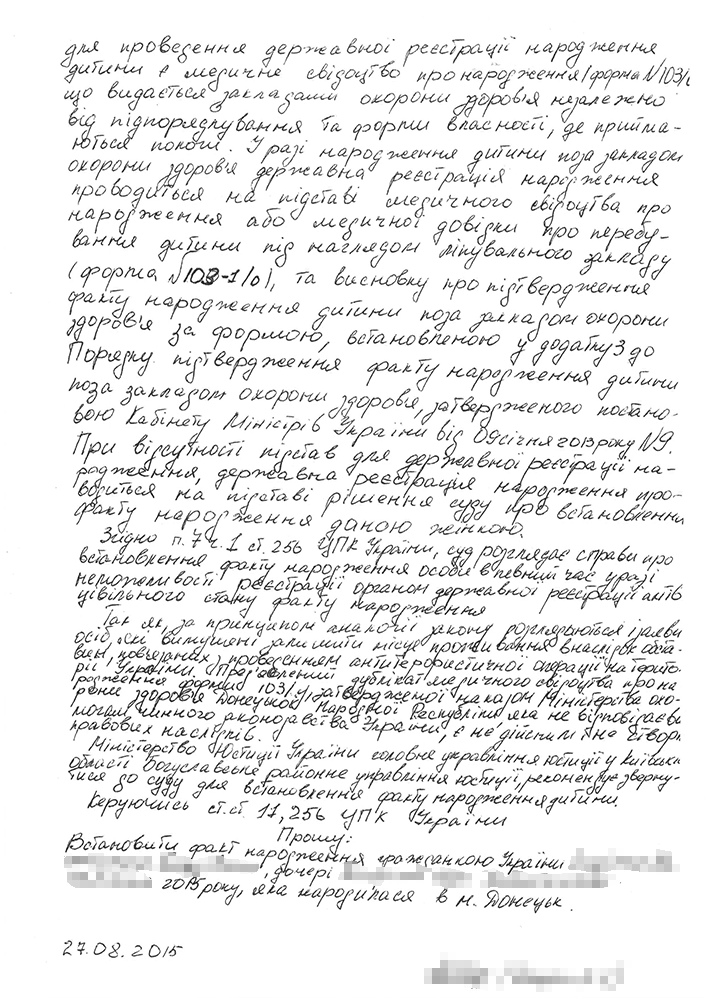 для проведення державної реєстрації народження
дитини є медичне свідоцтво про народження (форма №103/
що видається закладами охорони здоров'я незалежно
від підпорядкування та форми власності, де прийма-
ються пологи. У разі народження дитини поза закладом
охорони здоров'я державна реєстрація народження
проводиться на підставі медичного свідоцтва про
народження або медичної довідки про перебу-
вання дитини під наглядом лікувального закладу
(форма №103-1/о), та висновку про підтвердження
факту народження дитини поза закладом охорони
здоров'я за формою, встановленою у додатку 3 до
Порядку підтвердження факту народження дитини
поза закладом охорони здоров'я, затвердженого постано-
вою Кабінету Міністрів України від 09 січня 2013 року №9.
При відсутності підстав для державної реєстрації на-
родження, державна реєстрація народження про-
водиться на підставі рішення суду про встановлення
факту народження даною жінкою.
Згідно п. 7 ч. 1 ст. 256 ЦПК України, суд розглядає справи про
встановлення факту народження особи в певний час у разі
неможливості реєстрації органом державної реєстрації актів
цивільного стану факту народження
Так як, за принципом аналогії закону розглядаються і заяви
осіб, які вимушені залишити місце проживання внаслідок обста-
вин, пов'язаних з проведенням антитерористичної операції на терито-
рії України. Представлений дублікат медичного свідоцтва про на-
родження форми 103/у, затвердженої наказом Міністерства охо-
рони здоров'я Донецької Народної Республіки яка не відповідає ви
могам чинного законодавства України, є не дійсним і не створ
правових наслідків.
Міністерство юстиції України головне управління юстиції у Київській
області Богуславське районне управління юстиції, рекомендує зверну-
тися до суду для встановлення факту народження дитини.
Керуючись ст.ст. 17, 256 ЦПК України
Прошу:
Встановити факт народження громадянкою України
, дочері
2015 року, яка народилася в м. Донецьк.
27.08.2015